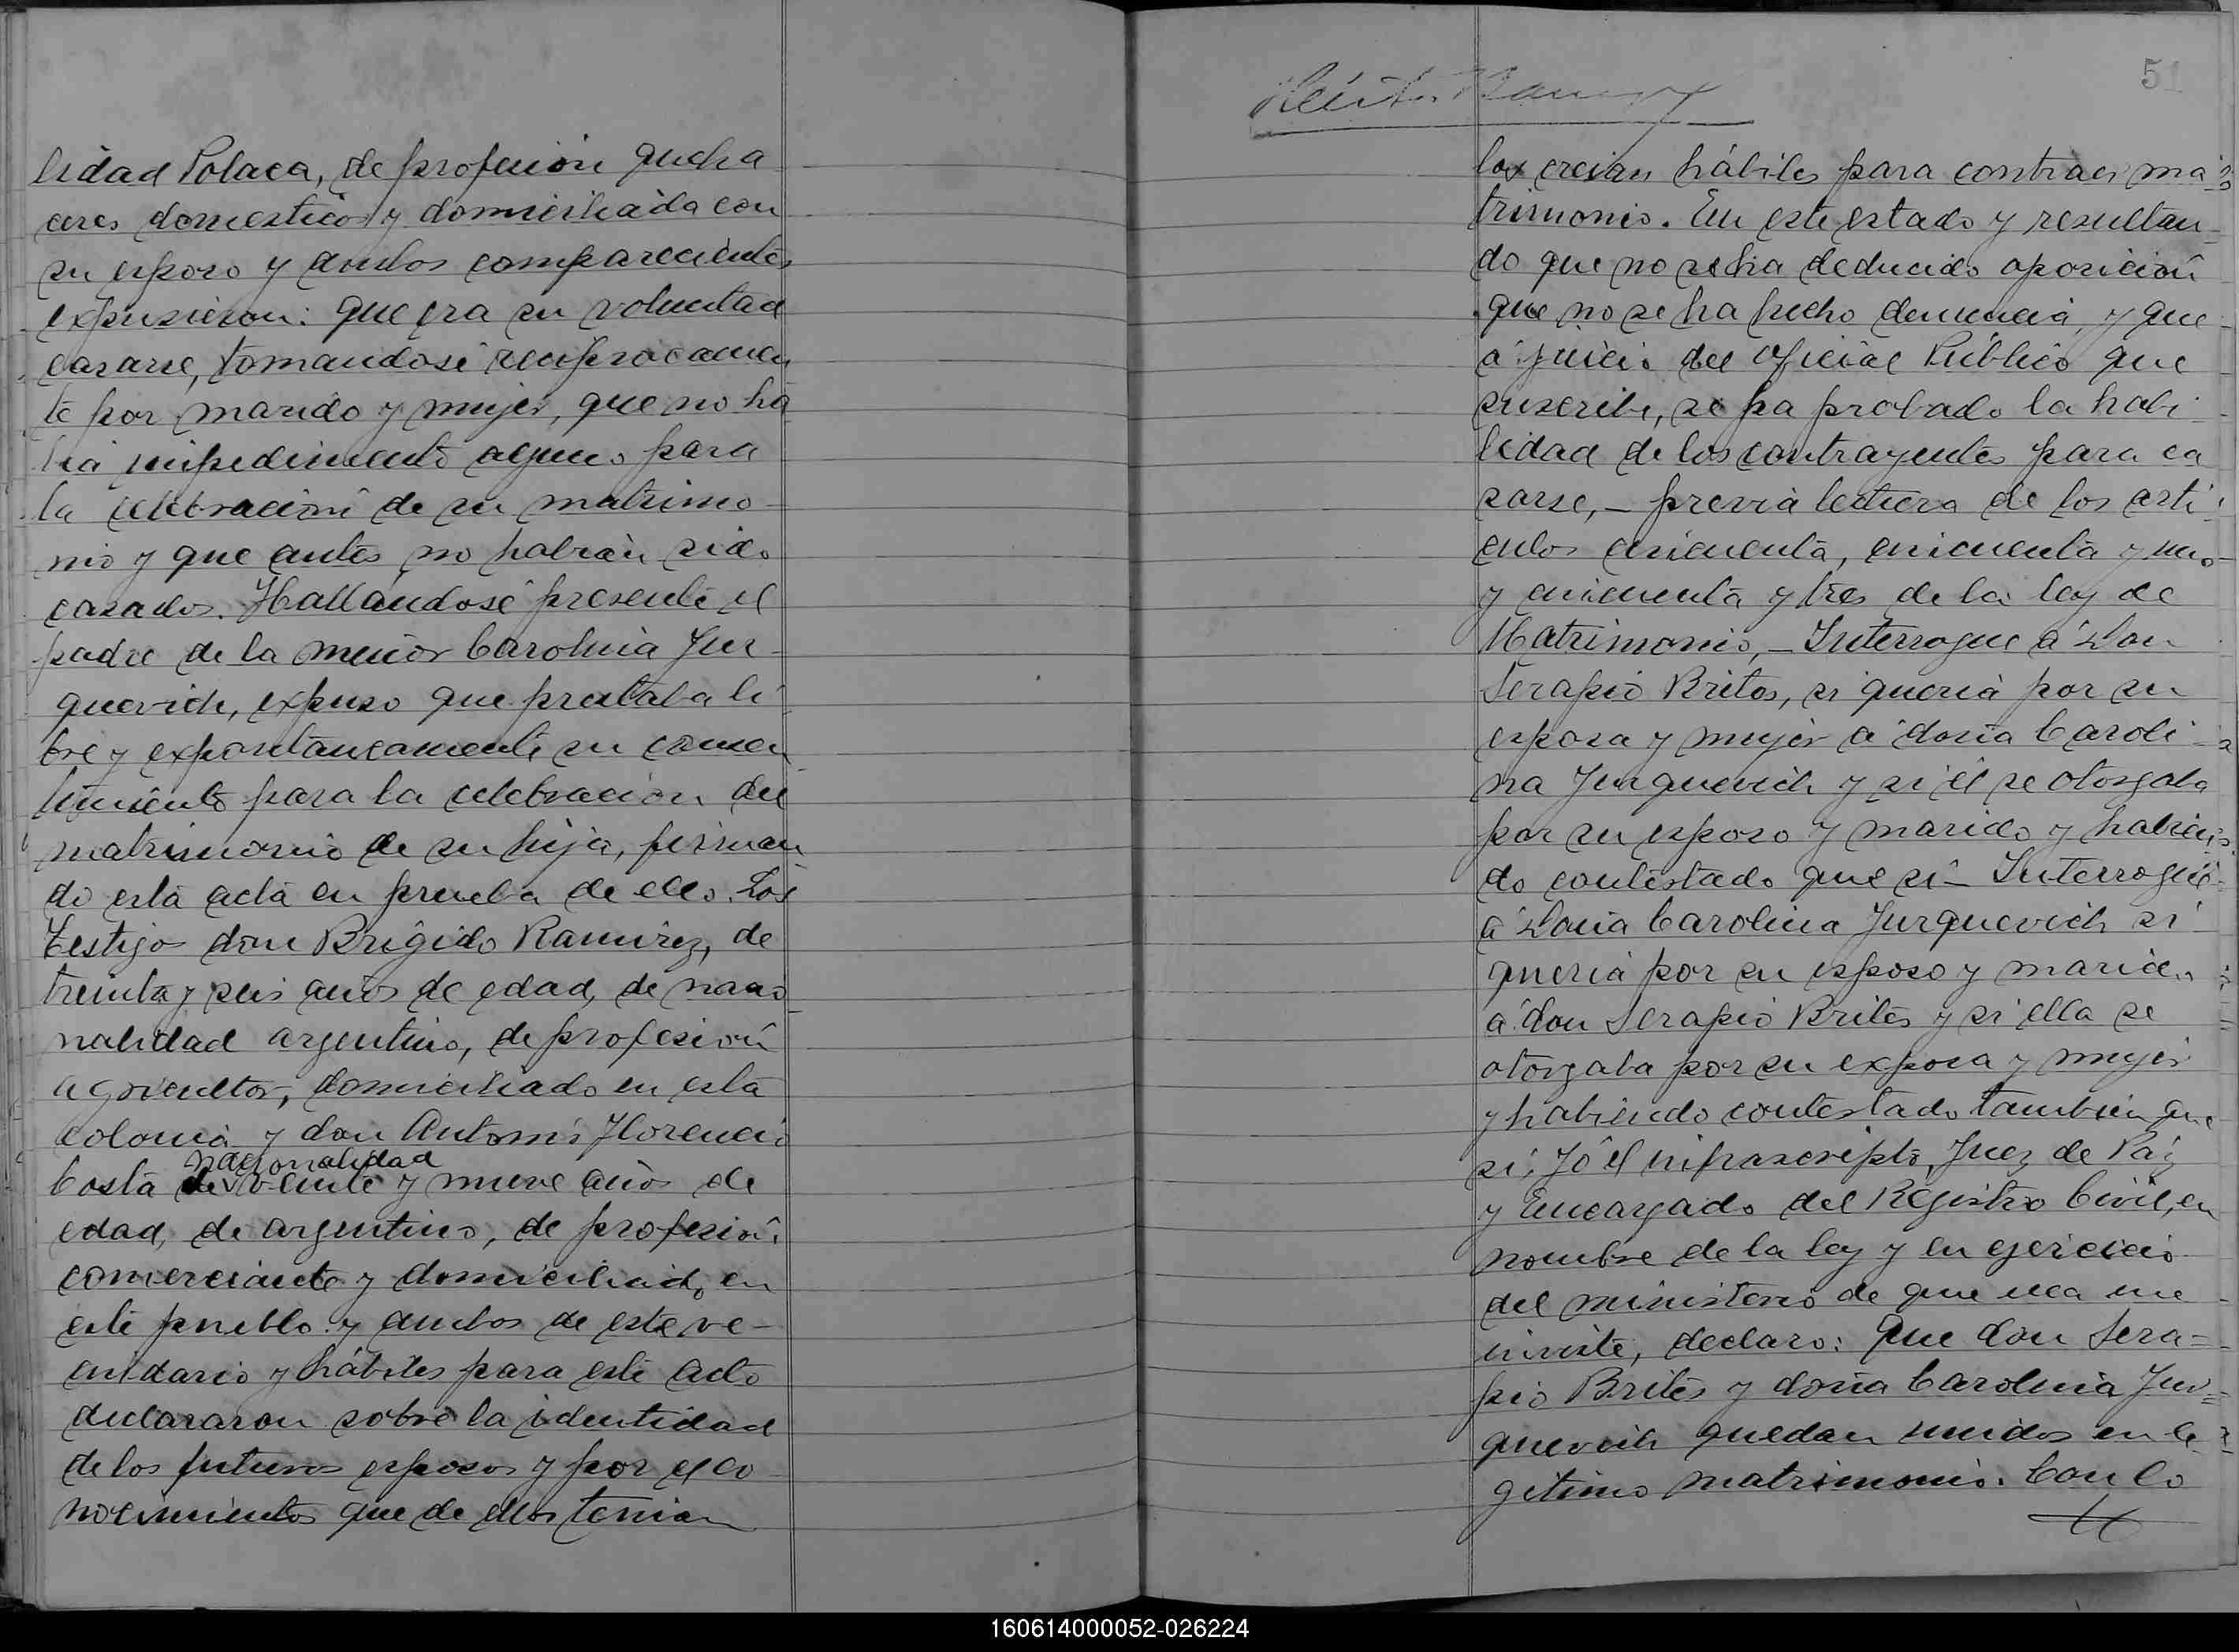 lidad Polaca, de profesion queha
ceres domesticos y domiciliada con
su esposo y ambos comparecientes
expusieron: que era su voluntad
casarse, tomandose reciprocamen
te por marido y mujer, que no ha
bia impedimento alguno para
la celebracion de su matrimo-
nio y que antes no habian sido
casados. Hallandose presente el
padre de la menor Carolina Jur-
quevich, expuso que prestaba li-
bre y expontaneamente su consen
timiento para la celebracion del
matrimonio de su hija, firman
do esta acta en prueba de ello. Los
Testigos don Brigido Ramirez, de
treinta y seis años de edad, de nacio
nalidad argentino, de profesion
agricultor, domiciliado en esta
colonia y don Antonio Florencio
nacionalidad
Costa de veinte y nueve años de
edad, de argentino, de profesion
comerciante y domiciliado en
este pueblo y ambos de este ve-
cindario y hábiles para este acto
declararon sobre la identidad
de los futuros esposos y por el co
nocimiento que de ellos tenian
51
los creian hábiles para contraer ma
trimonio. En este estado y resultan-
do que no se ha deducido oposicion
que no se ha hecho denuncia, y que
a juicio del oficial Público que
suscribe, se ha probado la habi-
lidad de los contrayentes para ca
sarse, - previa lectura de los arti
culos cincuenta, cincuenta y uno
y cincuenta y tres de la ley de
Matrimonio, - Interrogue a Don
Serapio Brites, si queria por su
esposa y mujer a doña Caroli-
na Jurquevich y si él se otorgaba
por su esposo y marido y habien
do contestado que si - Interrogué
a Doña Carolina Jurquevich si
queria por su esposo y marido
a don Serapio Brites y si ella se
otorgaba por su esposa y mujer
y habiendo contestado tambien que
si, Yo el infrascripto, Juez de Paz
y Encargado del Registro Civil, en
nombre de la ley y en ejercicio
del ministerio de que ella me
inviste, declaro: Que don Sera=
pio Brites y doña Carolina Jur=
quevich quedan unidos en le-
gitimo matrimonio. Con lo
160614000052-026224